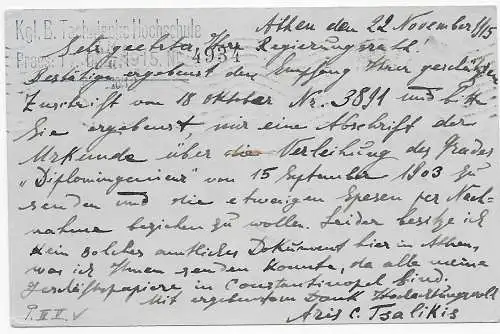 Kgl. B. Technische Hochschule
Athen den 22 November 1915
Sehr geehrter Herr Regierungsrat!
Praes. 1915. Nr. 4934
Bestätige ergebenst den Empfang Ihrer geschätzten
Zuschrift vom 18 Oktober Nr. 3891 und bitte
Sie ergebenst, mir eine Abschrift der
Urkunde über die Verleihung des Grades
„Diplomingenieur" vom 15 September 1903 zu
senden und die etwaigen Spesen per Nach-
nahme beziehen zu wollen. Leider besitze ich
kein solches amtliches Dokument hier in Athen,
was ich Ihnen senden könnte, da alle meine
Geschäftspapiere in Constantinopel sind.
Mit ergebenstem Dank Hochachtungsvoll
Aris C. Tsalikis